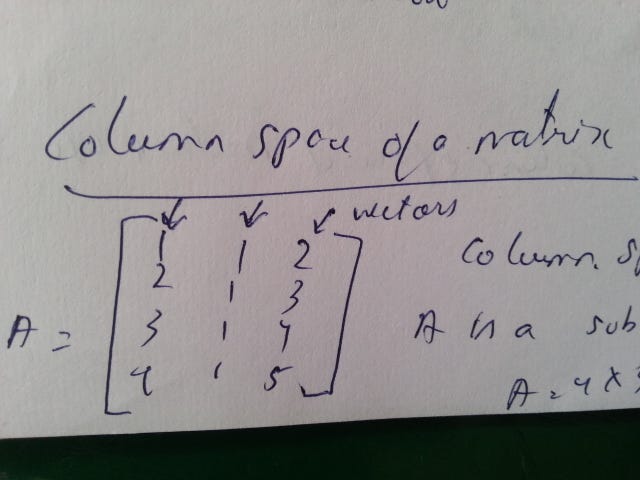 Column space of a matrix
vectors
1 1 2
2 1 3
3 1 4
4 1 5
A =
Column
A is a sub
A = 4 x 3